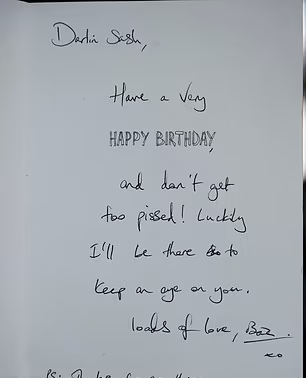 Darlin Sash,
Have a very
HAPPY BIRTHDAY
and don't get
too pissed! Luckily
I'll be there to
keep an eye on you.
loads of love, Baz.
xo